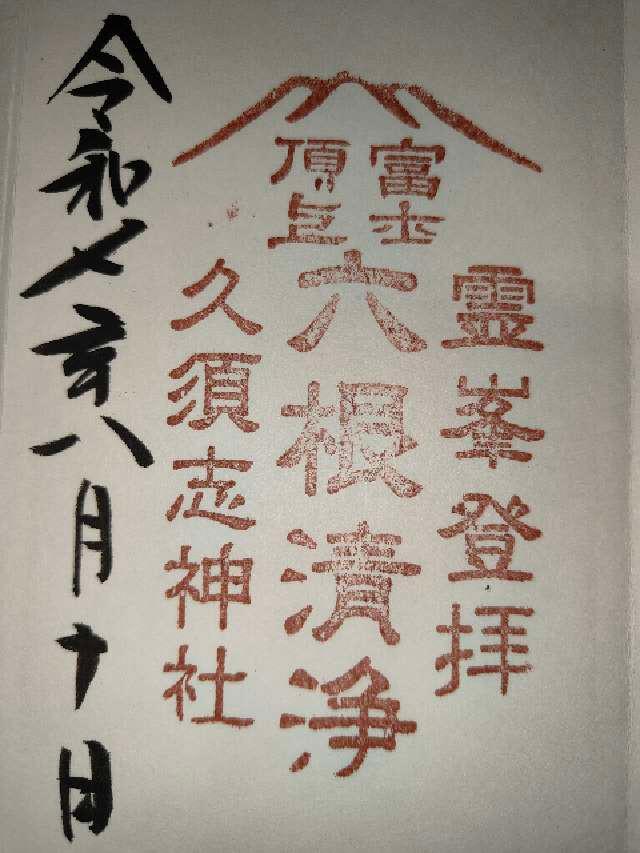 富士
頂上
霊峯登拝
六根清浄
久須志神社
令和七年八月十日